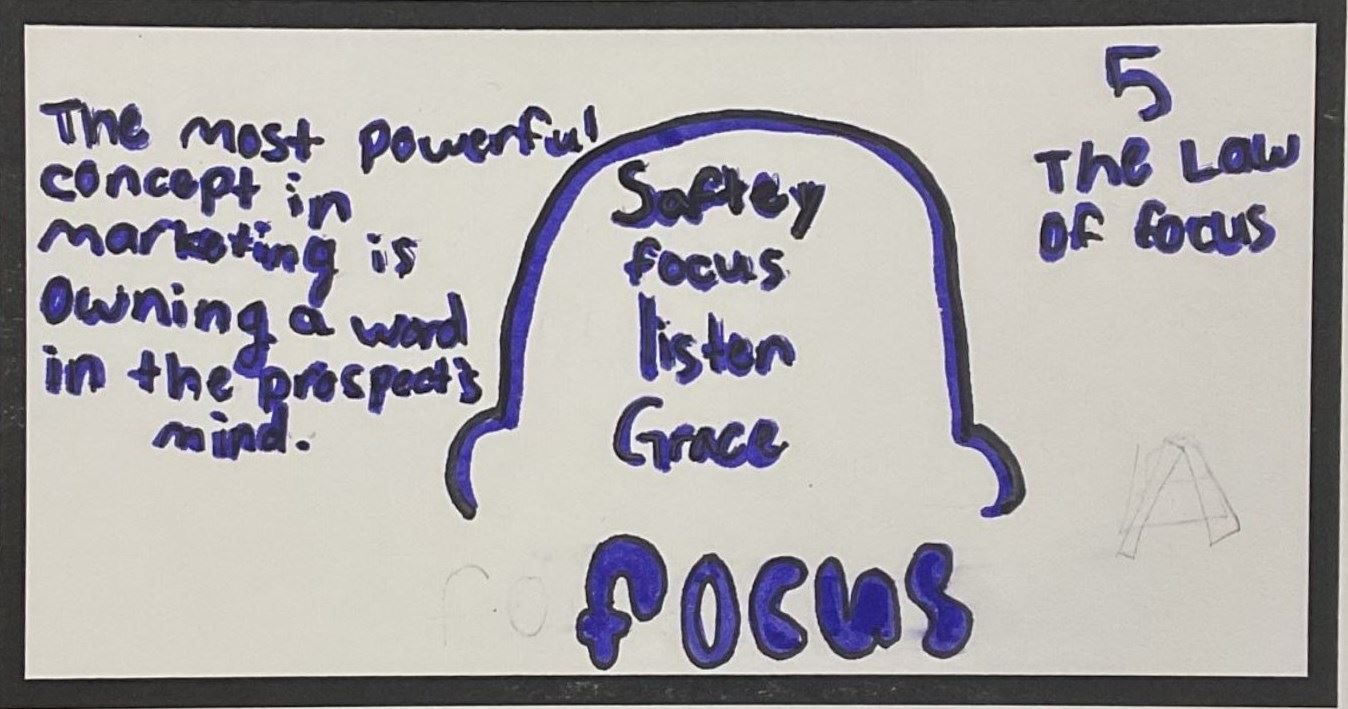 The most powerful
concept in
marketing is
Owning a word
in the prospect's
mind.
Saftey
focus
listen
Grace
5
The Law
of focus
A
fo
focus